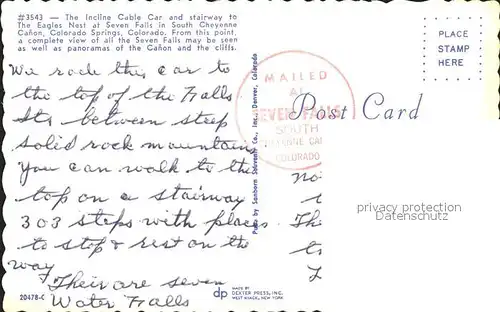 #3543 — The Incline Cable Car and stairway to
The Eagles Nest at Seven Falls in South Cheyenne
Cañon, Colorado Springs, Colorado. From this point,
a complete view of all the Seven Falls may be seen
as well as panoramas of the Cañon and the cliffs.
We rode this car to
the top of the Falls
Its between steep
solid rock mountains
You can walk to the
top on a stairway
303 steps with places
to stop & rest on the
way
Their are seven
Water Falls
20478-C
Pub. by Sanborn Souvenir Co., Inc., Denver, Colorado
dp
MADE BY
DEXTER PRESS, INC.
WEST NYACK, NEW YORK
MAILED
AT
SEVEN FALLS
SOUTH
CHEYENNE CAÑ
COLORADO
Post Card
PLACE
STAMP
HERE
privacy protection
Datenschutz